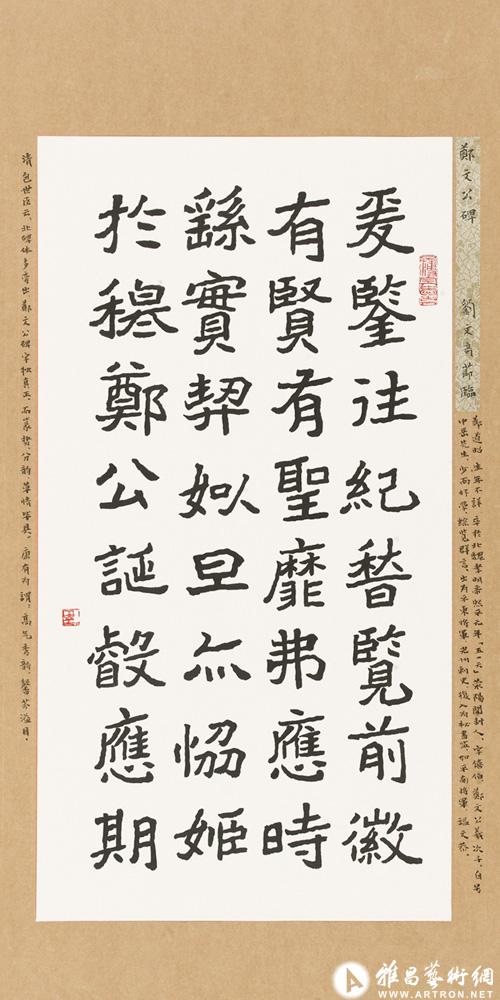 鄭文公碑 劉文
節臨
鄭道昭，生年不詳，卒於北魏孝明帝熙平元年（五一六），滎陽開封人，字僖伯，鄭文公羲次子，自号
中岳先生，少而好學，綜覽群言，出為平東將軍，光州刺史，復入為秘書監，加平南將軍，謚文恭。
爰鑒往紀稽覽前徽
有賢有聖靡弗應時
繇實契姒旦亦恊姬
於穆鄭公誕叡應期
清包世臣云，北碑体多旁出，鄭文公碑字独真正，而篆勢、分韵、草情畢具。康有为謂：高氣秀韵，馨芬溢目。
雅昌藝術網
WWW.ARTRON.NET